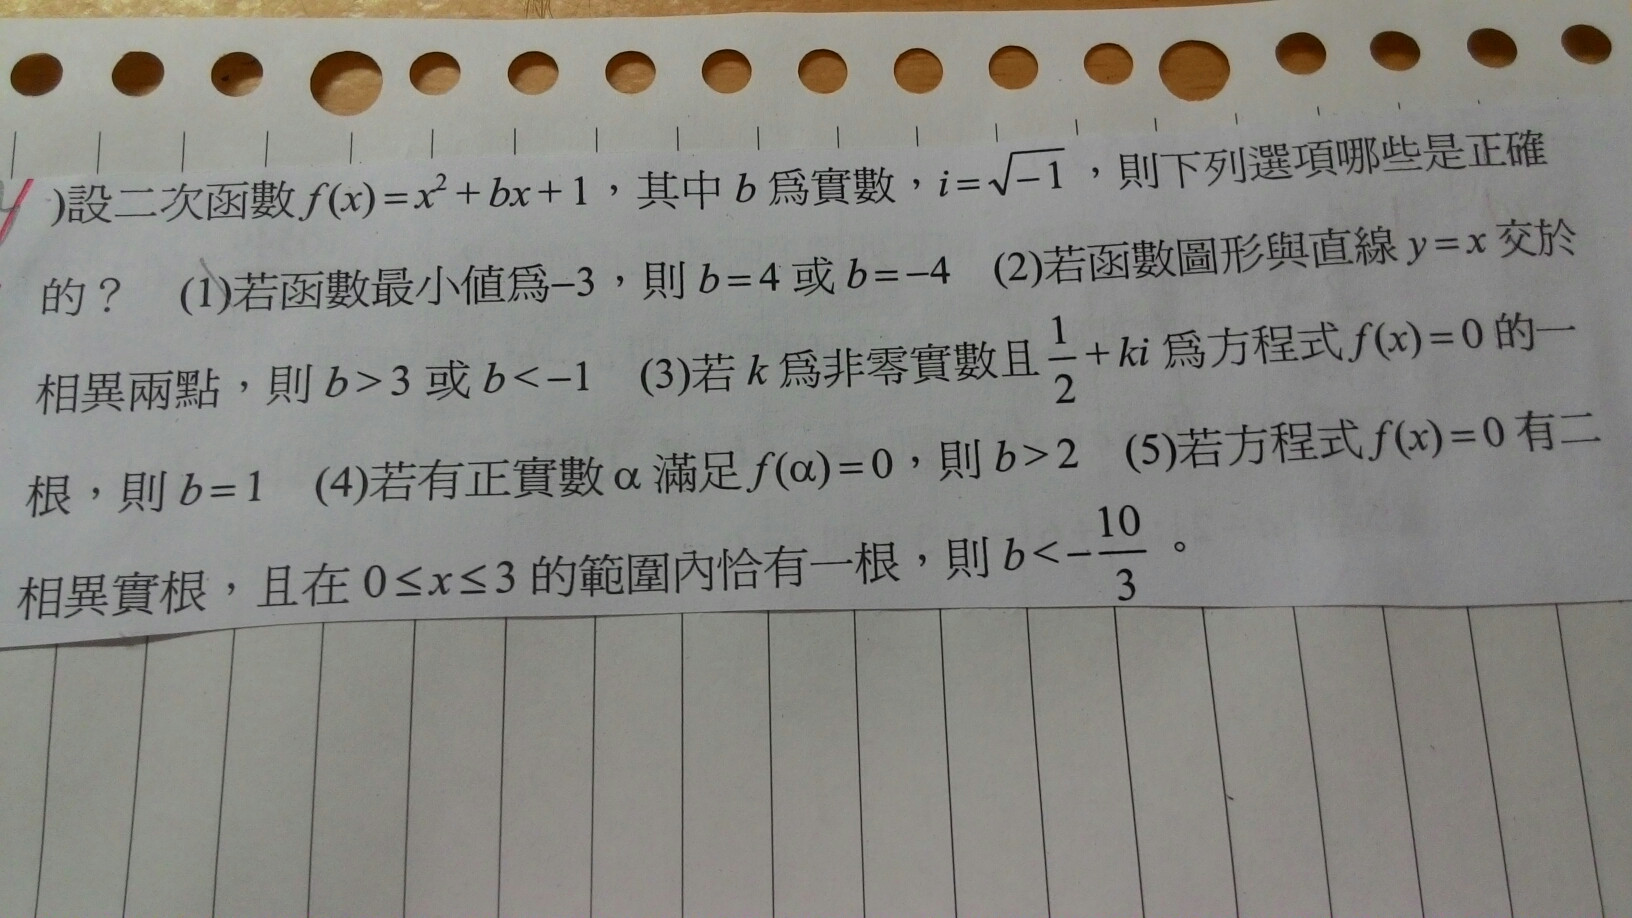 )設二次函數f(x)=x²+bx+1，其中b為實數，i=√-1，則下列選項哪些是正確
的？ (1)若函數最小值為-3，則b=4或b=-4 (2)若函數圖形與直線y=x交於
相異兩點，則b>3或b<-1 (3)若k為非零實數且1/2+ki為方程式f(x)=0的一
根，則b=1 (4)若有正實數α滿足f(α)=0，則b>2 (5)若方程式f(x)=0有二
相異實根，且在0≤x≤3的範圍內恰有一根，則b<-10/3。